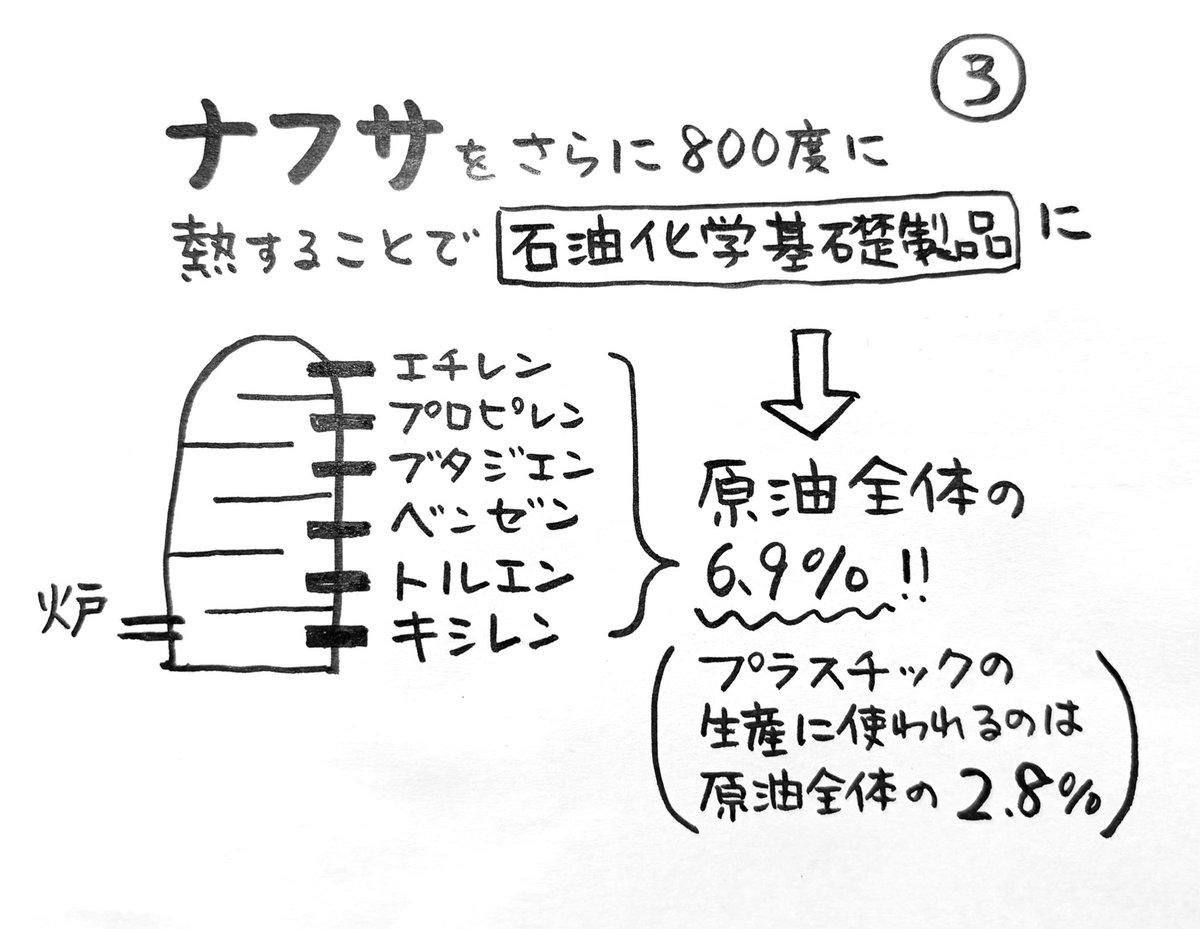 ③
ナフサをさらに800度に
熱することで 石油化学基礎製品 に
エチレン
プロピレン
ブタジエン
ベンゼン
トルエン
キシレン
炉
原油全体の
6.9%!!
(プラスチックの
生産に使われるのは
原油全体の 2.8%)